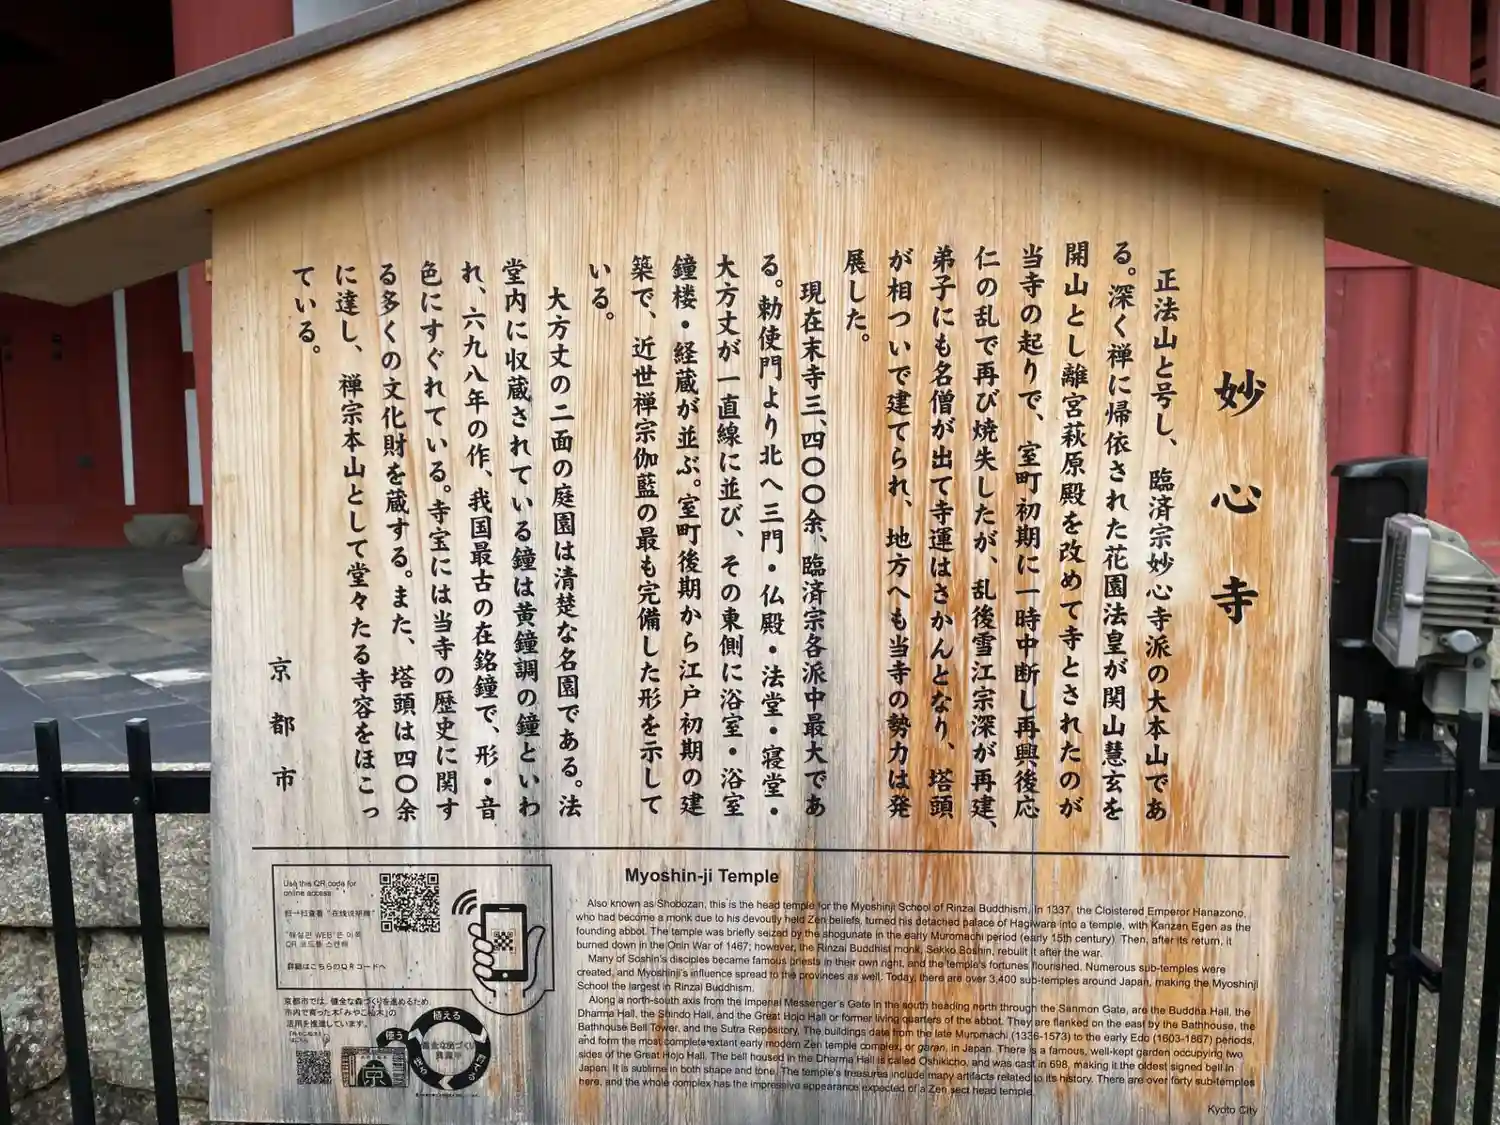 妙心寺
正法山と号し、臨済宗妙心寺派の大本山であ
る。深く禅に帰依された花園法皇が関山慧玄を
開山とし離宮萩原殿を改めて寺とされたのが
当寺の起りで、室町初期に一時中断し再興後応
仁の乱で再び焼失したが、乱後雪江宗深が再建、
弟子にも名僧が出て寺運はさかんとなり、塔頭
が相ついで建てられ、地方へも当寺の勢力は発
展した。
現在末寺三、四〇〇余、臨済宗各派中最大であ
る。勅使門より北へ三門・仏殿・法堂・寝堂・
大方丈が一直線に並び、その東側に浴室・浴室
鐘楼・経蔵が並ぶ。室町後期から江戸初期の建
築で、近世禅宗伽藍の最も完備した形を示して
いる。
大方丈の二面の庭園は清楚な名園である。法
堂内に収蔵されている鐘は黄鐘調の鐘といわ
れ、六九八年の作、我国最古の在銘鐘で、形・音
色にすぐれている。寺宝には当寺の歴史に関す
る多くの文化財を蔵する。また、塔頭は四〇余
に達し、禅宗本山として堂々たる寺容をほこっ
ている。
京都市
Use this QR code for
online access
扫一扫查看 "在线说明牌"
"해설판 WEB"은 이쪽
QR 코드를 스캔해
詳細はこちらのQRコードへ
京都市では、健全な森づくりを進めるため
市内で育った木「みやこ杣木」の
活用を推進しています。
植える
使う
京
Myoshin-ji Temple
Also known as Shobozan, this is the head temple for the Myoshinji School of Rinzai Buddhism. In 1337, the Cloistered Emperor Hanazono,
who had become a monk due to his devoutly held Zen beliefs, turned his detached palace of Hagiwara into a temple, with Kanzan Egen as the
founding abbot. The temple was briefly seized by the shogunate in the early Muromachi period (early 15th century). Then, after its return, it
burned down in the Onin War of 1467; however, the Rinzai Buddhist monk, Sekko Soshin, rebuilt it after the war.
Many of Soshin's disciples became famous priests in their own right, and the temple's fortunes flourished. Numerous sub-temples were
created, and Myoshinji's influence spread to the provinces as well. Today, there are over 3,400 sub-temples around Japan, making the Myoshinji
School the largest in Rinzai Buddhism.
Along a north-south axis from the Imperial Messenger's Gate in the south heading north through the Sanmon Gate, are the Buddha Hall, the
Dharma Hall, the Shindo Hall, and the Great Hojo Hall or former living quarters of the abbot. They are flanked on the east by the Bathhouse, the
Bathhouse Bell Tower, and the Sutra Repository. The buildings date from the late Muromachi (1336-1573) to the early Edo (1603-1867) periods,
and form the most complete extant early modern Zen temple complex, or garan, in Japan. There is a famous, well-kept garden occupying two
sides of the Great Hojo Hall. The bell housed in the Dharma Hall is called Oshikicho, and was cast in 698, making it the oldest signed bell in
Japan. It is sublime in both shape and tone. The temple's treasures include many artifacts related to its history. There are over forty sub-temples
here, and the whole complex has the impressive appearance expected of a Zen sect head temple.
Kyoto City